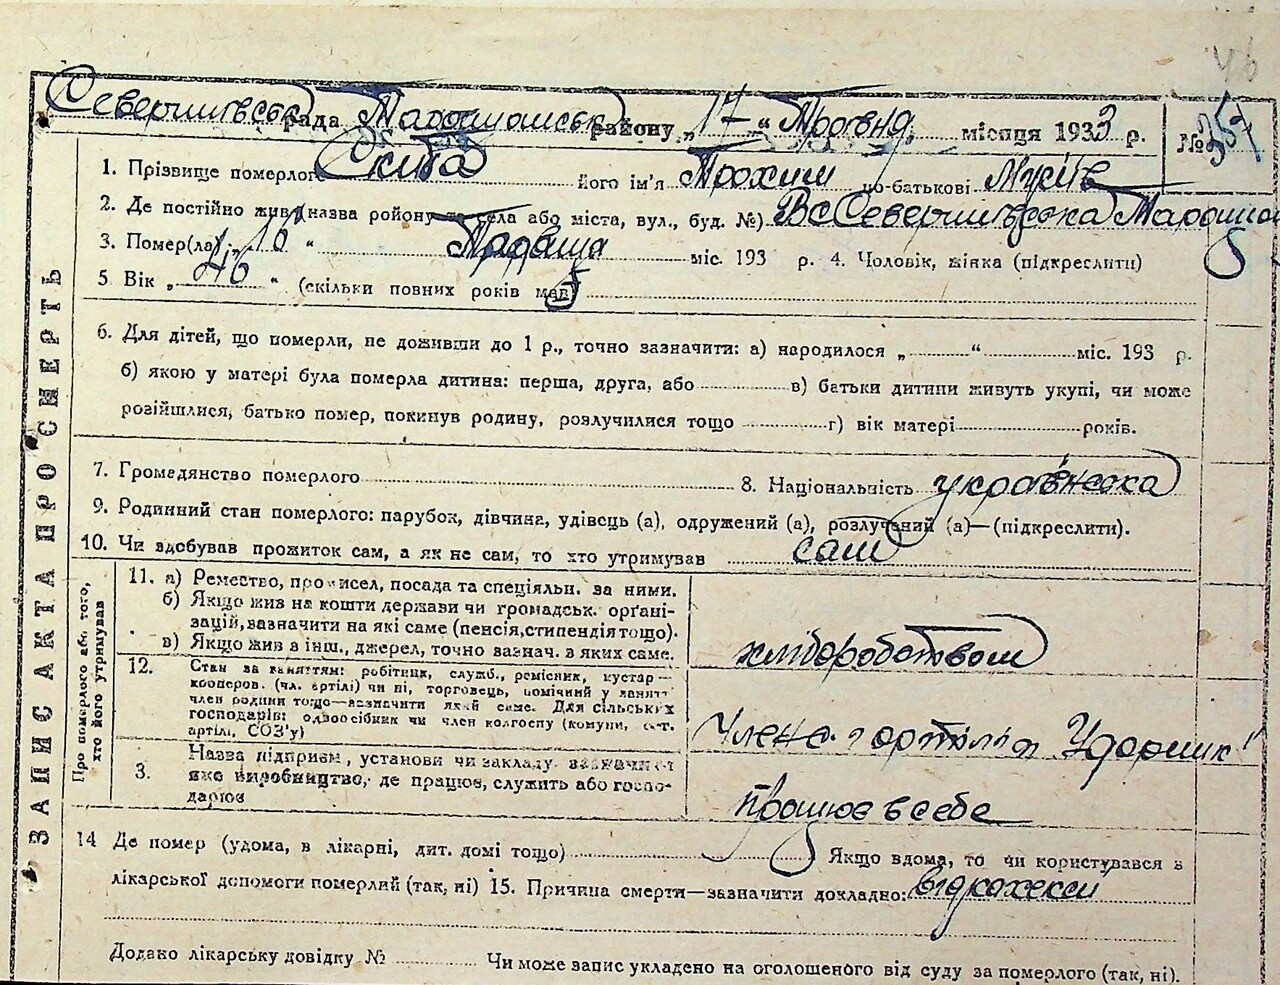 46
Севериніvська рада Таращанськ району „17“ Травня місяця 1933 р. № 357
1. Прізвище померлого Скиба його ім'я Прохим по-батькові Мусів
2. Де постійно жив (назва району та села або міста, вул., буд. №) В с Северинівська Тараща
3. Помер(ла) „10“ міс. 193 р. 4. Чоловік, жінка (підкреслити)
5 Вік „46“ (скільки повних років мав)
6. Для дітей, що померли, не доживши до 1 р., точно зазначити: а) народилося „ “ міс. 193 р.
б) якою у матері була померла дитина: перша, друга, або в) батьки дитини живуть укупі, чи може
розійшлися, батько помер, покинув родину, розлучилися тощо г) вік матері років.
7. Громадянство померлого 8. Національність українська
9. Родинний стан померлого: парубок, дівчина, удівець (а), одружений (а), розлучений (а)—(підкреслити).
10. Чи здобував прожиток сам, а як не сам, то хто утримував сам
ЗАПИС АКТА ПРО СМЕРТЬ
Про померлого або того,
хто його утримував
11. а) Ремество, промисел, посада та спеціяльн. за ними.
б) Якщо жив на кошти держави чи громадськ. орґані-
зацій, зазначити на які саме (пенсія, стипендія тощо).
в) Якщо жив в інш., джерел, точно вазнач. в яких саме.
хліборобством
12. Стан за заняттям: робітник, служб., ремісник, кустар—
кооперов. (чл. артілі) чи ні, торговець, помічний у занятт
член родини тощо—зазначити який саме. Для сільських
господарів: одноосібник чи член колгоспу (комуни, с.-г.
артілі, СОЗ'у)
Член с г артілі Ударник
3. Назва підприєм, установи чи закладу зазначити
яке виробництво, де працює, служить або госпо-
дарює
працює в себе
14 Де помер (удома, в лікарні, дит. домі тощо) Якщо вдома, то чи користувався з
лікарської допомоги померлий (так, ні) 15. Причина смерти—зазначити докладно: від кахексії
Додано лікарську довідку № Чи може запис укладено на оголошеного від суду за померлого (так, ні).